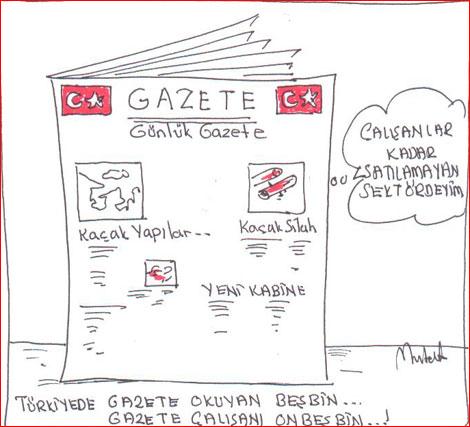 GAZETE
Günlük Gazete
Kaçak Yapılar...
Kaçak Silah
YENİ KABİNE
ÇALIŞANLAR
KADAR
SATILAMAYAN
SEKTÖRDEYİM
TÜRKİYEDE GAZETE OKUYAN BEŞBİN...
GAZETE ÇALIŞANI ONBEŞBİN...!